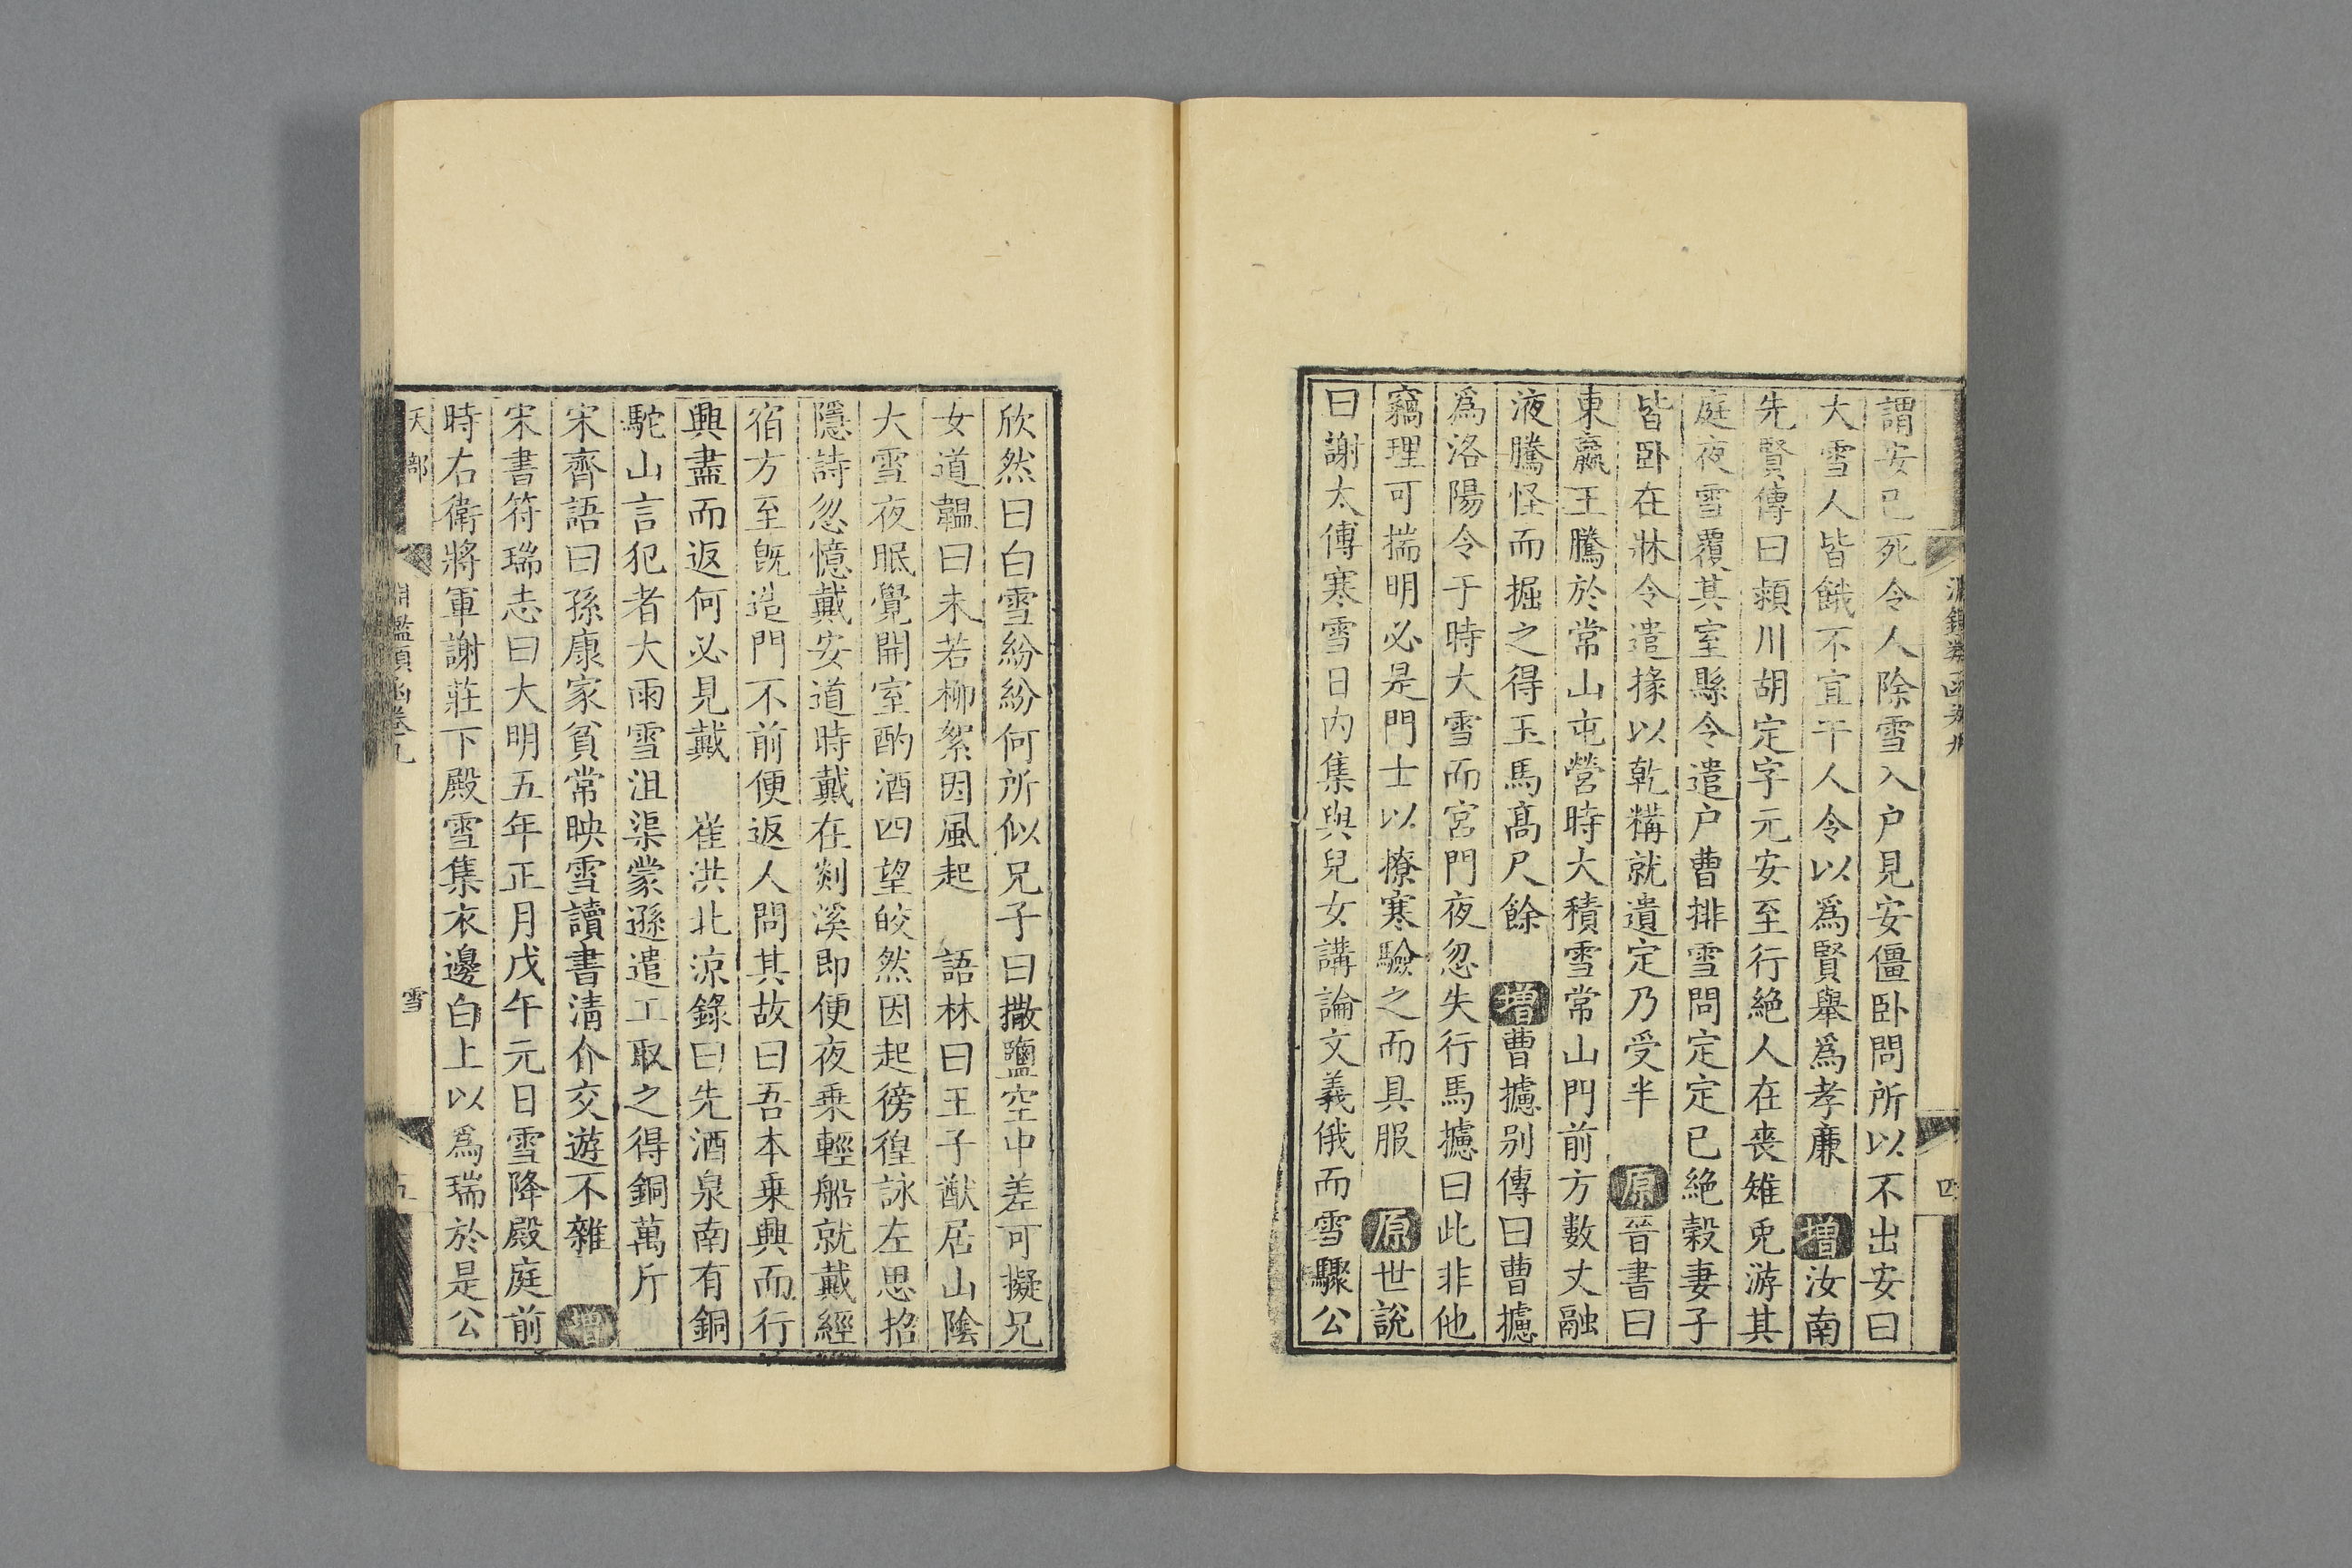 謂安已死令人除雪入户見安僵卧問所以不出安曰
大雪人皆餓不宜干人令以爲賢舉爲孝廉 增汝南
先賢傳曰潁川胡定字元安至行絶人在喪雉兎游其
庭夜雪覆其室縣令遣户曹排雪問定定已絶穀妻子
皆卧在牀令遣掾以乾糒就遺定乃受半 原晉書曰
東嬴王騰於常山屯營時大積雪常山門前方數丈融
液騰怪而掘之得玉馬高尺餘 增曹攄别傳曰曹攄
爲洛陽令于時大雪而宮門夜忽失行馬攄曰此非他
竊理可揣明必是門士以燎寒驗之而具服 原世說
曰謝太傅寒雪日内集與兒女講論文義俄而雪驟公
四
欣然曰白雪紛紛何所似兄子曰撒鹽空中差可擬兄
女道韞曰未若柳絮因風起 語林曰王子猷居山陰
大雪夜眠覺開室酌酒四望皎然因起徬徨詠左思招
隱詩忽憶戴安道時戴在剡溪即便夜乗輕船就戴經
宿方至旣造門不前便返人問其故曰吾本乗興而行
興盡而返何必見戴 崔洪北涼錄曰先酒泉南有銅
駝山言犯者大雨雪沮渠蒙遜遣工取之得銅萬斤
宋齊語曰孫康家貧常映雪讀書清介交遊不雜 增
宋書符瑞志曰大明五年正月戊午元日雪降殿庭前
時右衛將軍謝莊下殿雪集衣邊白上以爲瑞於是公
天部 鑑類函卷九 雪 五